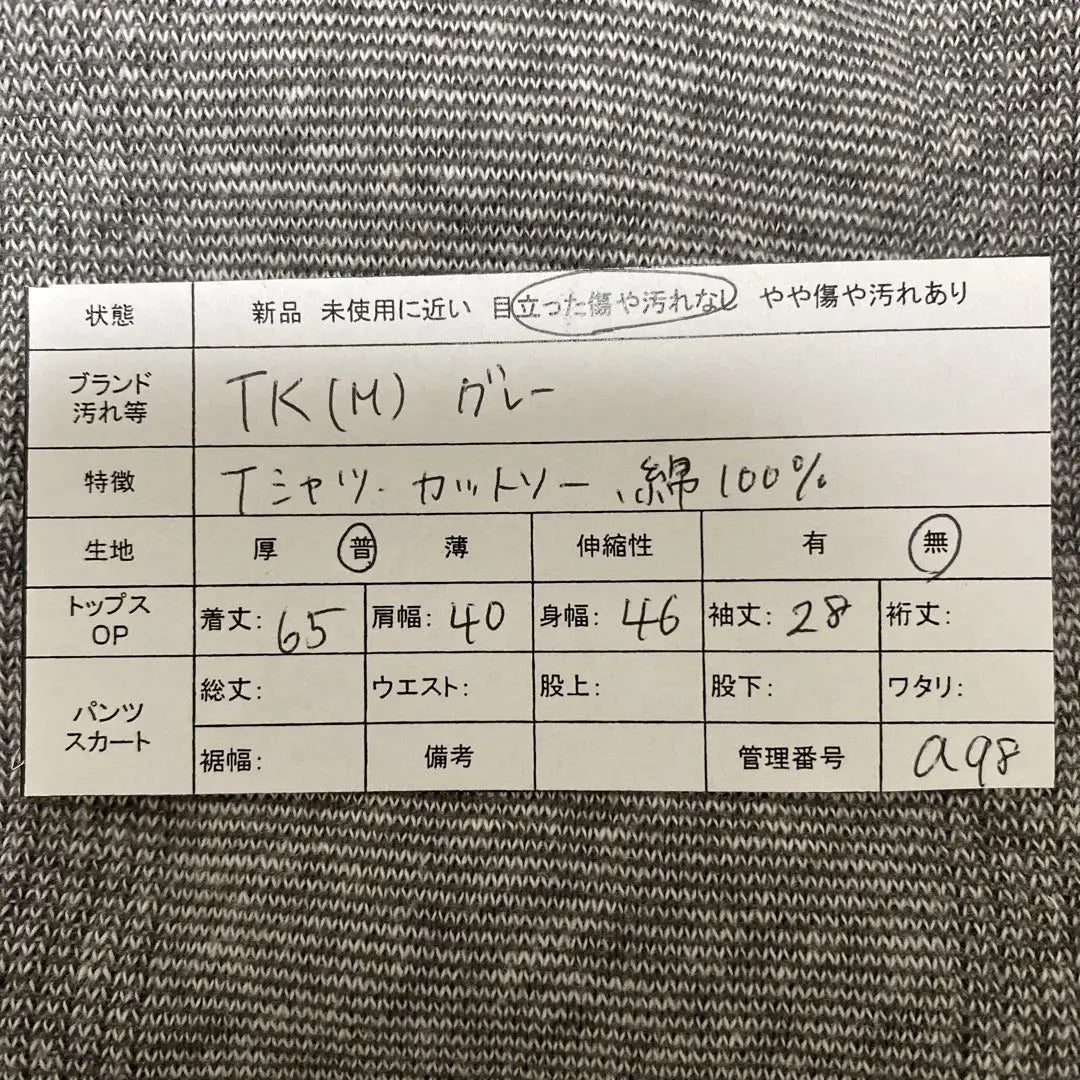 状態 新品 未使用に近い 目立った傷や汚れなし やや傷や汚れあり
ブランド
汚れ等
TK(M) グレー
特徴 Tシャツ・カットソー、綿100%
生地 厚 普 薄 伸縮性 有 無
トップス
OP
着丈: 65 肩幅: 40 身幅: 46 袖丈: 28 裄丈:
パンツ
スカート
総丈: ウエスト: 股上: 股下: ワタリ:
裾幅: 備考 管理番号 a98